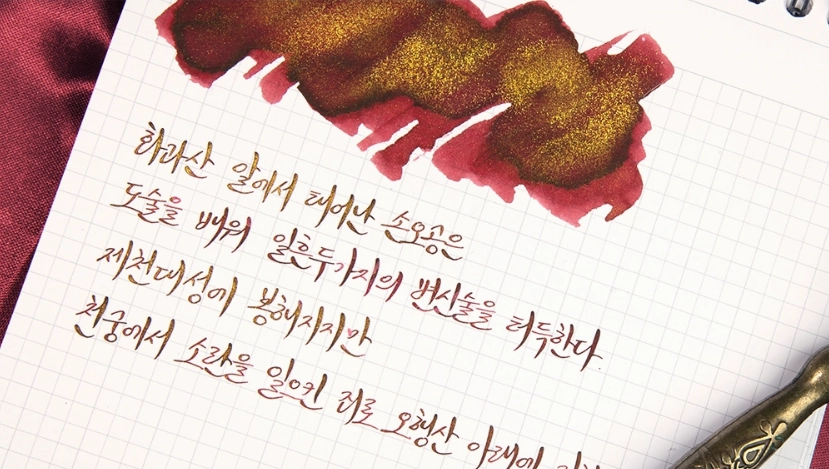 화과산 알에서 태어난 손오공은
도술을 배워 일흔두가지의 변신술을 터득한다.
제천대성에 봉해지지만
천궁에서 소란을 일으킨 죄로 오행산 아래에